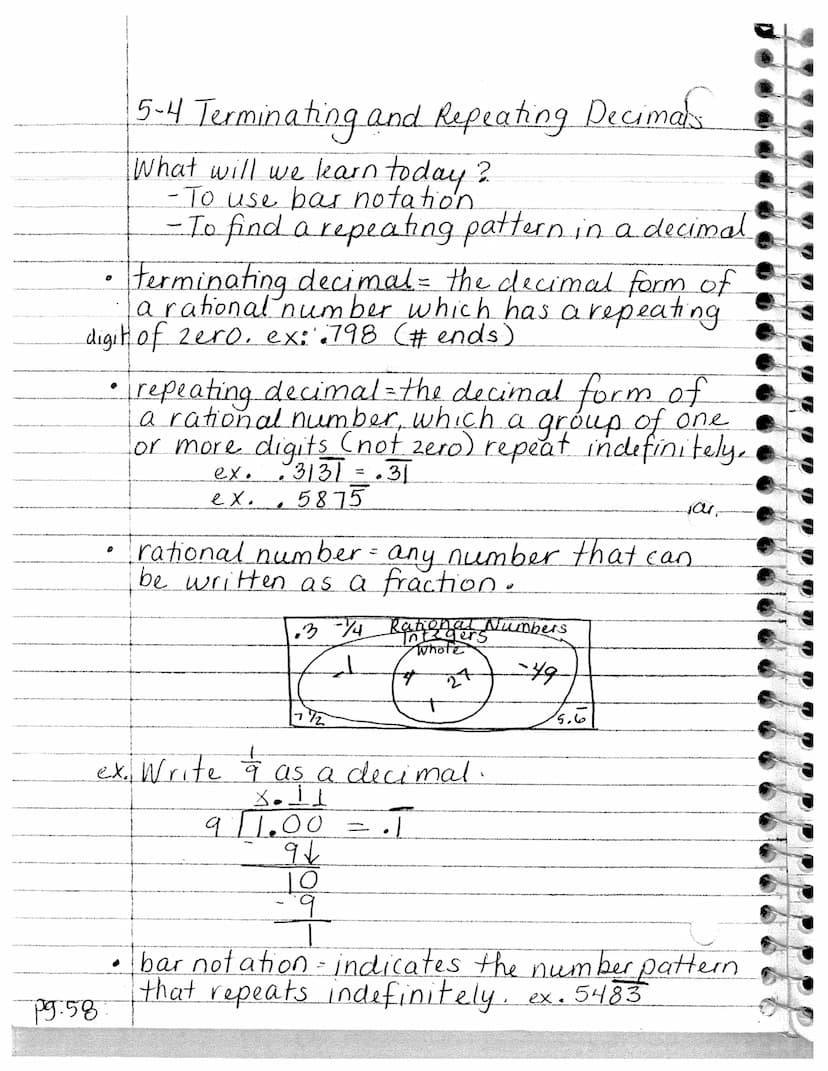 5-4 Terminating and Repeating Decimals
What will we learn today?
- To use bar notation
- To find a repeating pattern in a decimal
• terminating decimal = the decimal form of
a rational number which has a repeating
digit of zero. ex: .798 (# ends)
• repeating decimal = the decimal form of
a rational number, which a group of one
or more digits (not zero) repeat indefinitely.
ex. .313̅1̅ = .3̅1̅
ex. .5875̅
• rational number = any number that can
be written as a fraction.
.3 -1/4 Rational Numbers
Integers
Whole
-1 4 27 -49
1
7 1/2 5.6̅
ex. Write 1/9 as a decimal.
x.11
9 1.00 = .1̅
- 9↓
10
- 9
1
• bar notation = indicates the number pattern
that repeats indefinitely. ex. 548̅3̅
pg. 58